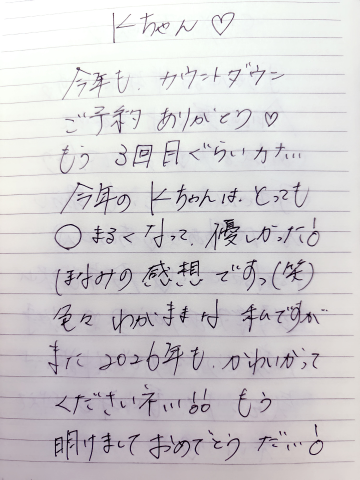 Kちゃん♡
今年も、カウントダウン
ご予約ありがとう♡
もう3回目ぐらいカナ…
今年のKちゃんは、とっても
○まるくなって、優しかった!
ほなみの感想ですっ(笑)
色々わがままな私ですが
また2026年も、かわいがって
くださいネ…!! もう
明けましておめでとうだ…!